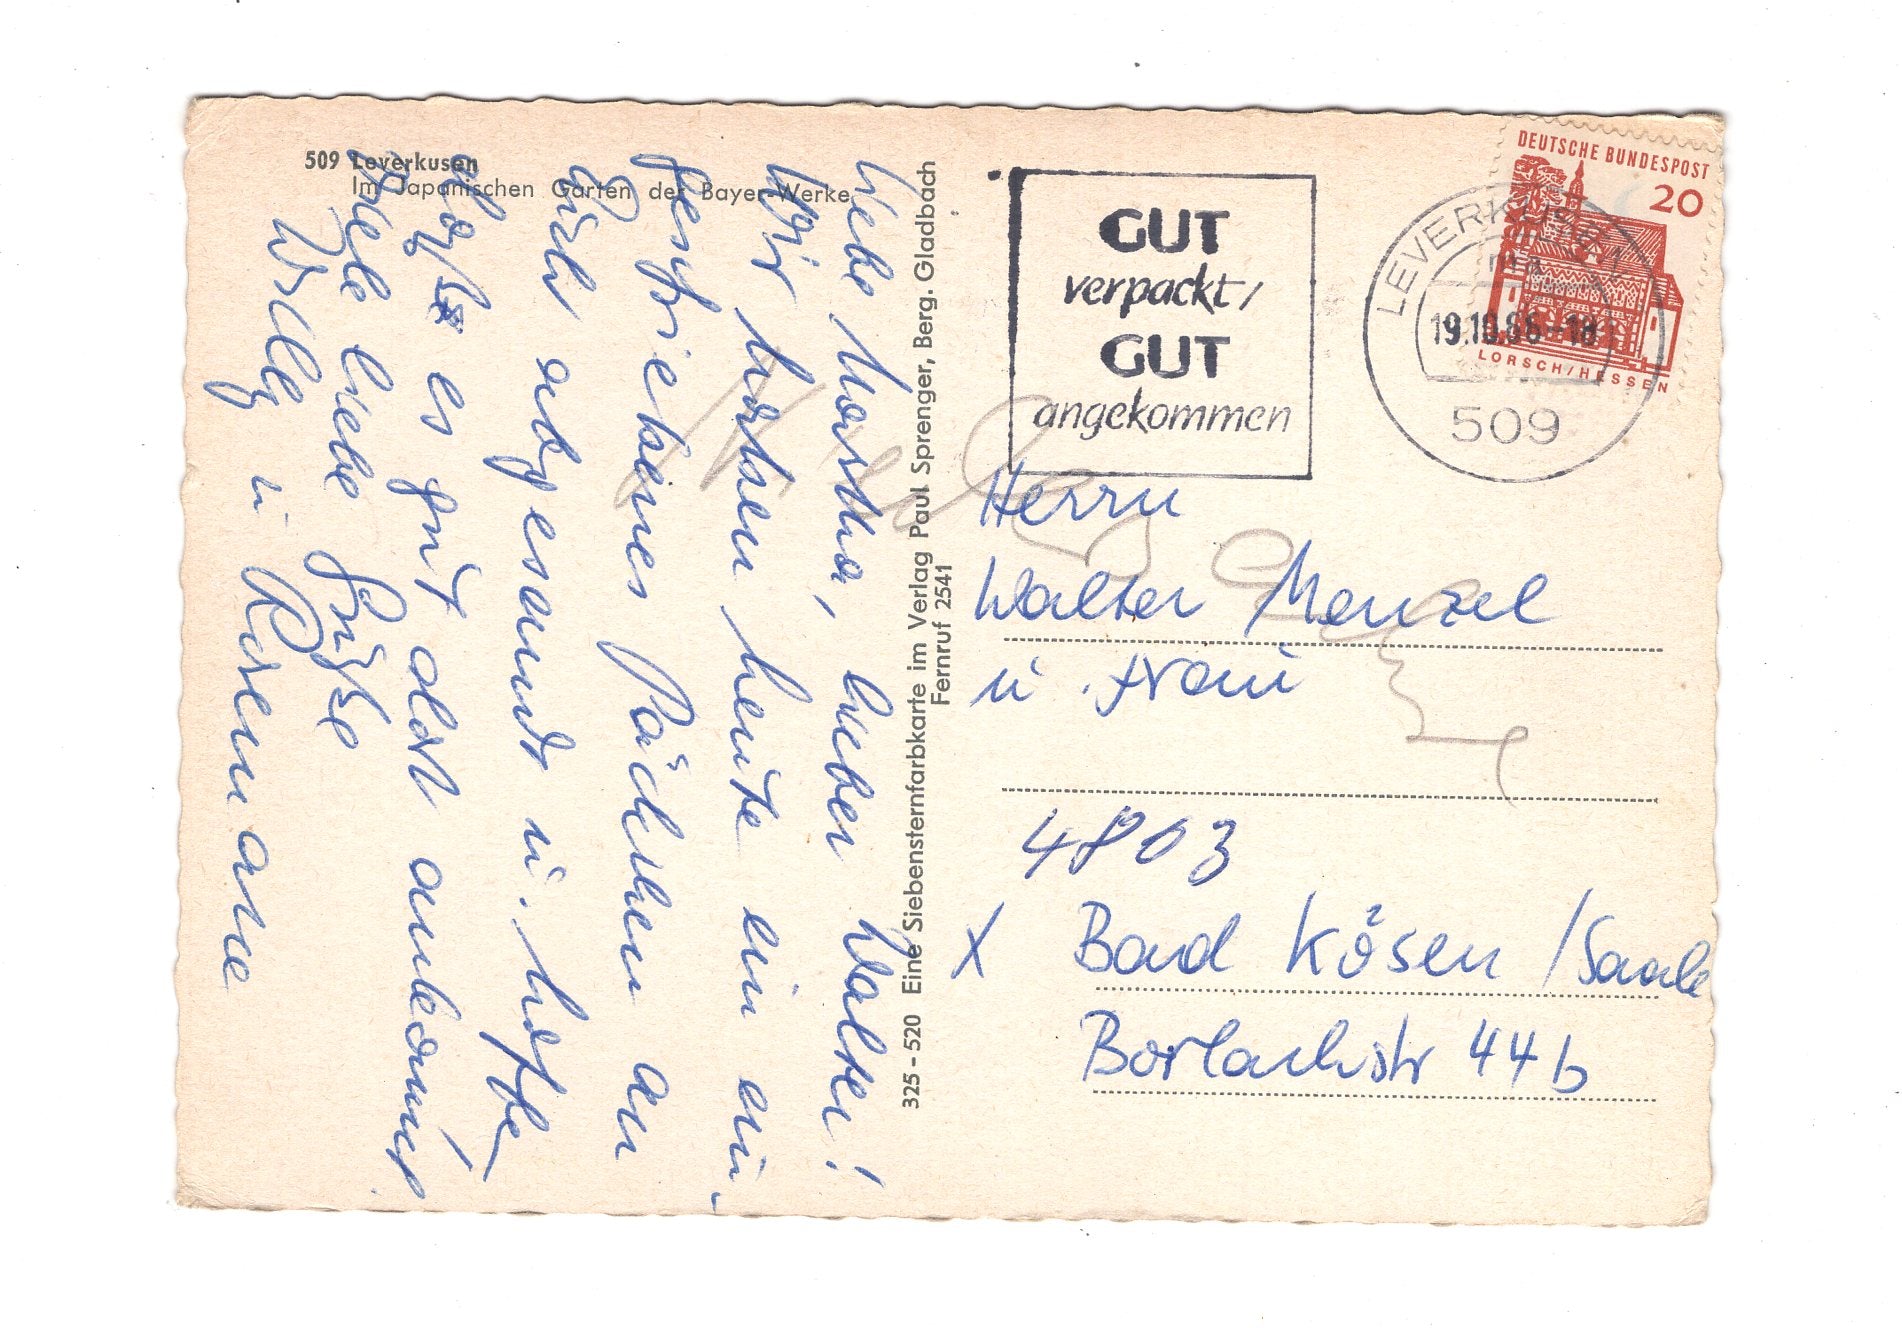 509 Leverkusen
Im Japanischen Garten der Bayer-Werke
Liebe Martha, lieber Walter!
Wir haben heute ein ein-
geschriebenes Päckchen an
Euch abgesandt u. hoffe,
daß es gut dort ankommt
Viele liebe Grüße
Willy u Rosemarie
325 - 520 Eine Siebensternfarbkarte im Verlag Paul Sprenger, Berg. Gladbach
Fernruf 2541
GUT
verpackt/
GUT
angekommen
DEUTSCHE BUNDESPOST
20
LORSCH/HESSEN
LEVERKUSEN 1
19.10.66-18
509
Herrn
Walter Menzel
u. Frau
4803
X Bad Kösen /Saale
Borlachstr 44b